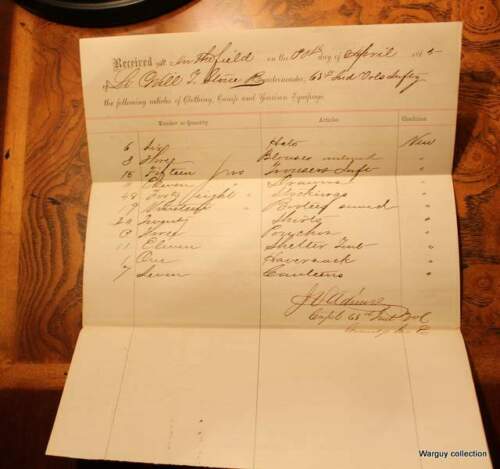 Received at In the field on the day of April 186
of Lt. Will T. Stone Qr. 65th Ind Vols Infty
the following articles of Clothing, Camp and Garrison Equipage.
Number or Quantity Articles Condition
6 Six Hats New
3 Three Blouses unlined "
15 Fifteen prs Trousers Inft "
11 Eleven " Drawers "
48 Forty eight " Stockings "
Bootees sewed "
20 Twenty Shirts "
3 Three Ponchos "
11 Eleven Shelter Tent "
1 One Haversack "
7 Seven Canteens "
Capt 65th Ind Vol
Warguy collection